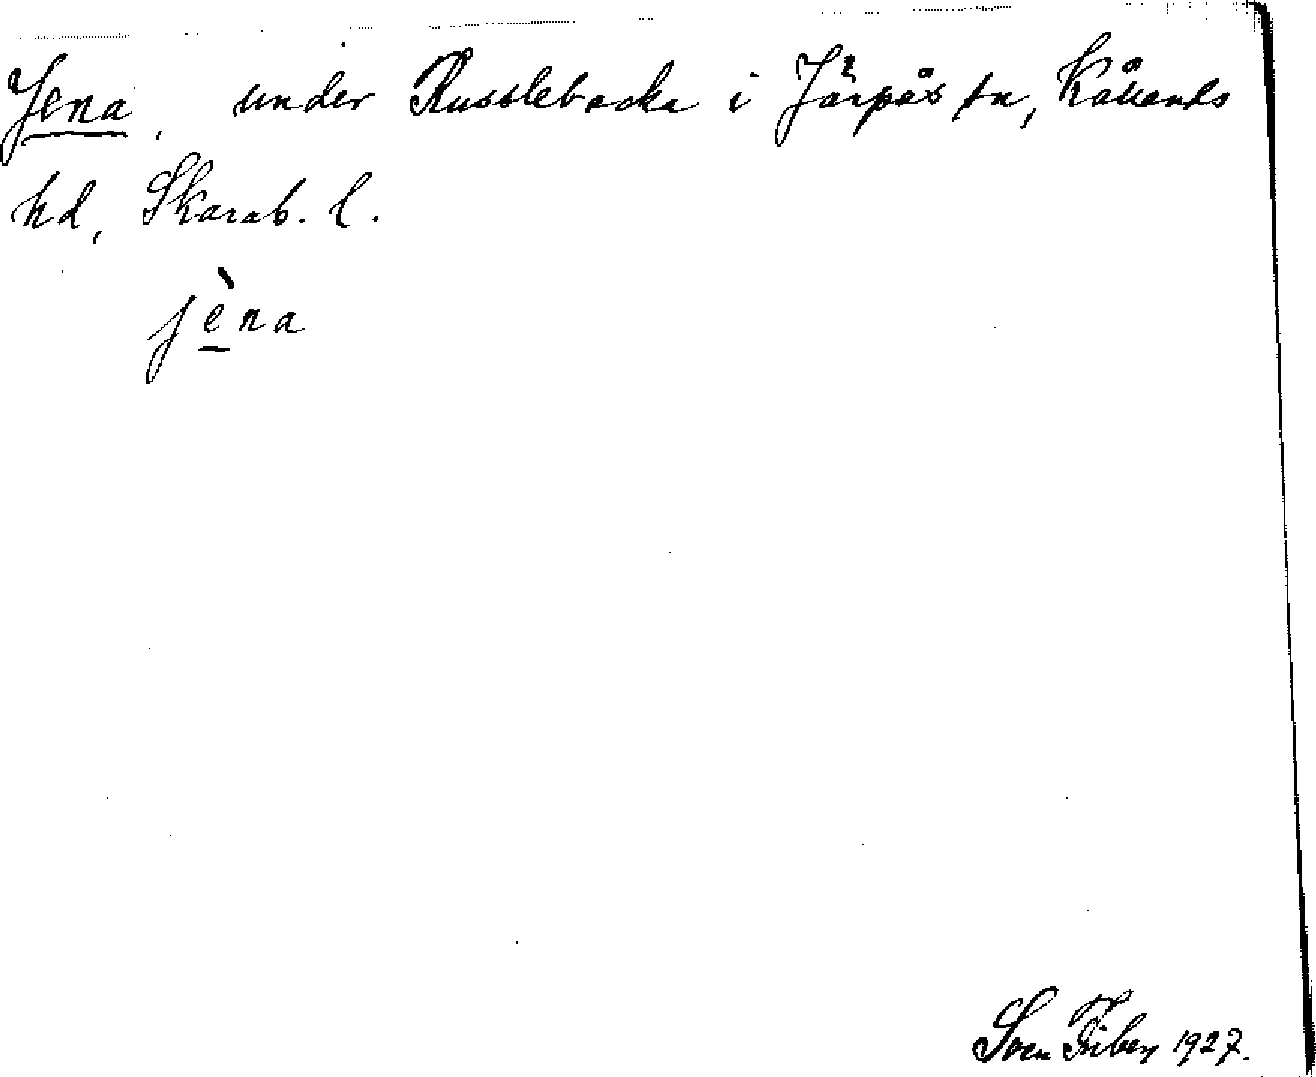 Jena, under Russlebacka i Järpås sn, Kållands
hd, Skarab. l.
jèna
Sven Friberg 1927.